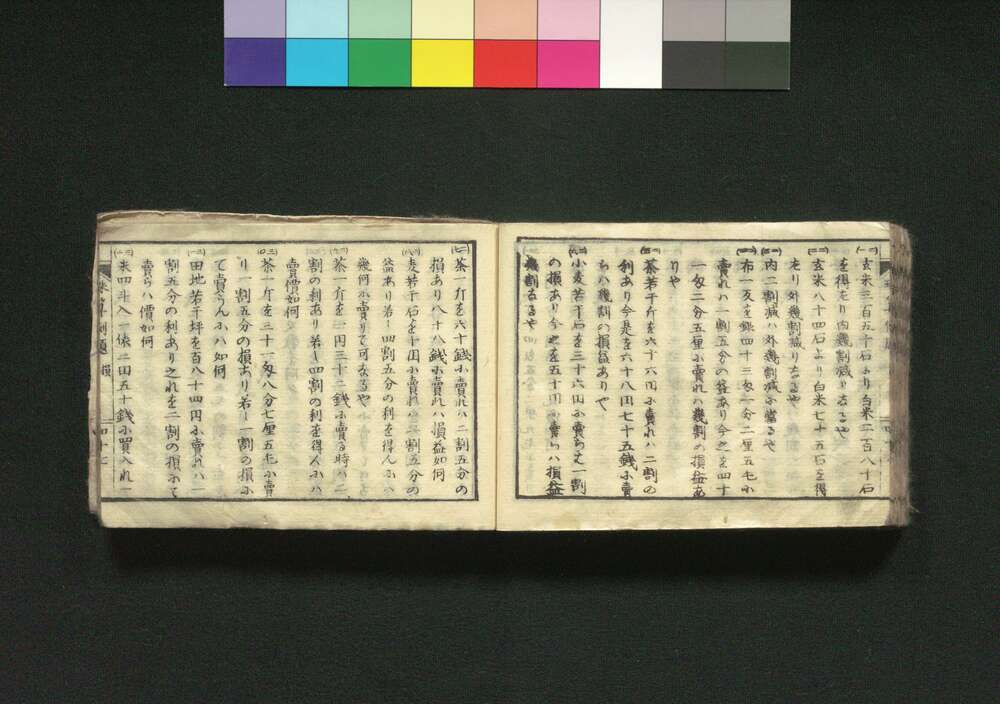 玄米三百五十石より白米二百八十石
を得たり内幾割減りなるや
玄米八十四石より白米七十五石を得
たり外幾割減りなるや
内二割減ハ外幾割減に當るや
布一反を銀四十三匁一分二厘五毛に
賣れハ一割五分の益あり今之を四十
一匁二分五厘に賣れハ幾割の損益あ
りや
茶若干斤を六十六円に賣れハ二割の
利あり今是を六十八円七十五銭に賣
らハ幾割の損益ありや
小麦若干石を三十六円に賣らは一割
の損あり今之を五十円に賣らハ損益
幾割なるや
茶一斤を六十銭に賣れハ二割五分の
損あり八十八銭に賣れハ損益如何
麦若干石を千円に賣れハ二割五分の
益あり若し四割五分の利を得んにハ
幾何に賣りて可なるや
茶一斤を一円三十二銭に賣る時ハ二
割の利あり若し四割の利を得んにハ
賣價如何
茶一斤を三十一匁八分七厘五毛に賣
り一割五分の損あり若し一割の損に
て賣らんにハ如何
田地若干坪を百八十四円に賣れハ一
割五分の利あり之れを二割の損にて
賣らハ價如何
米四斗入一俵二円五十銭に買入れ一
四十七